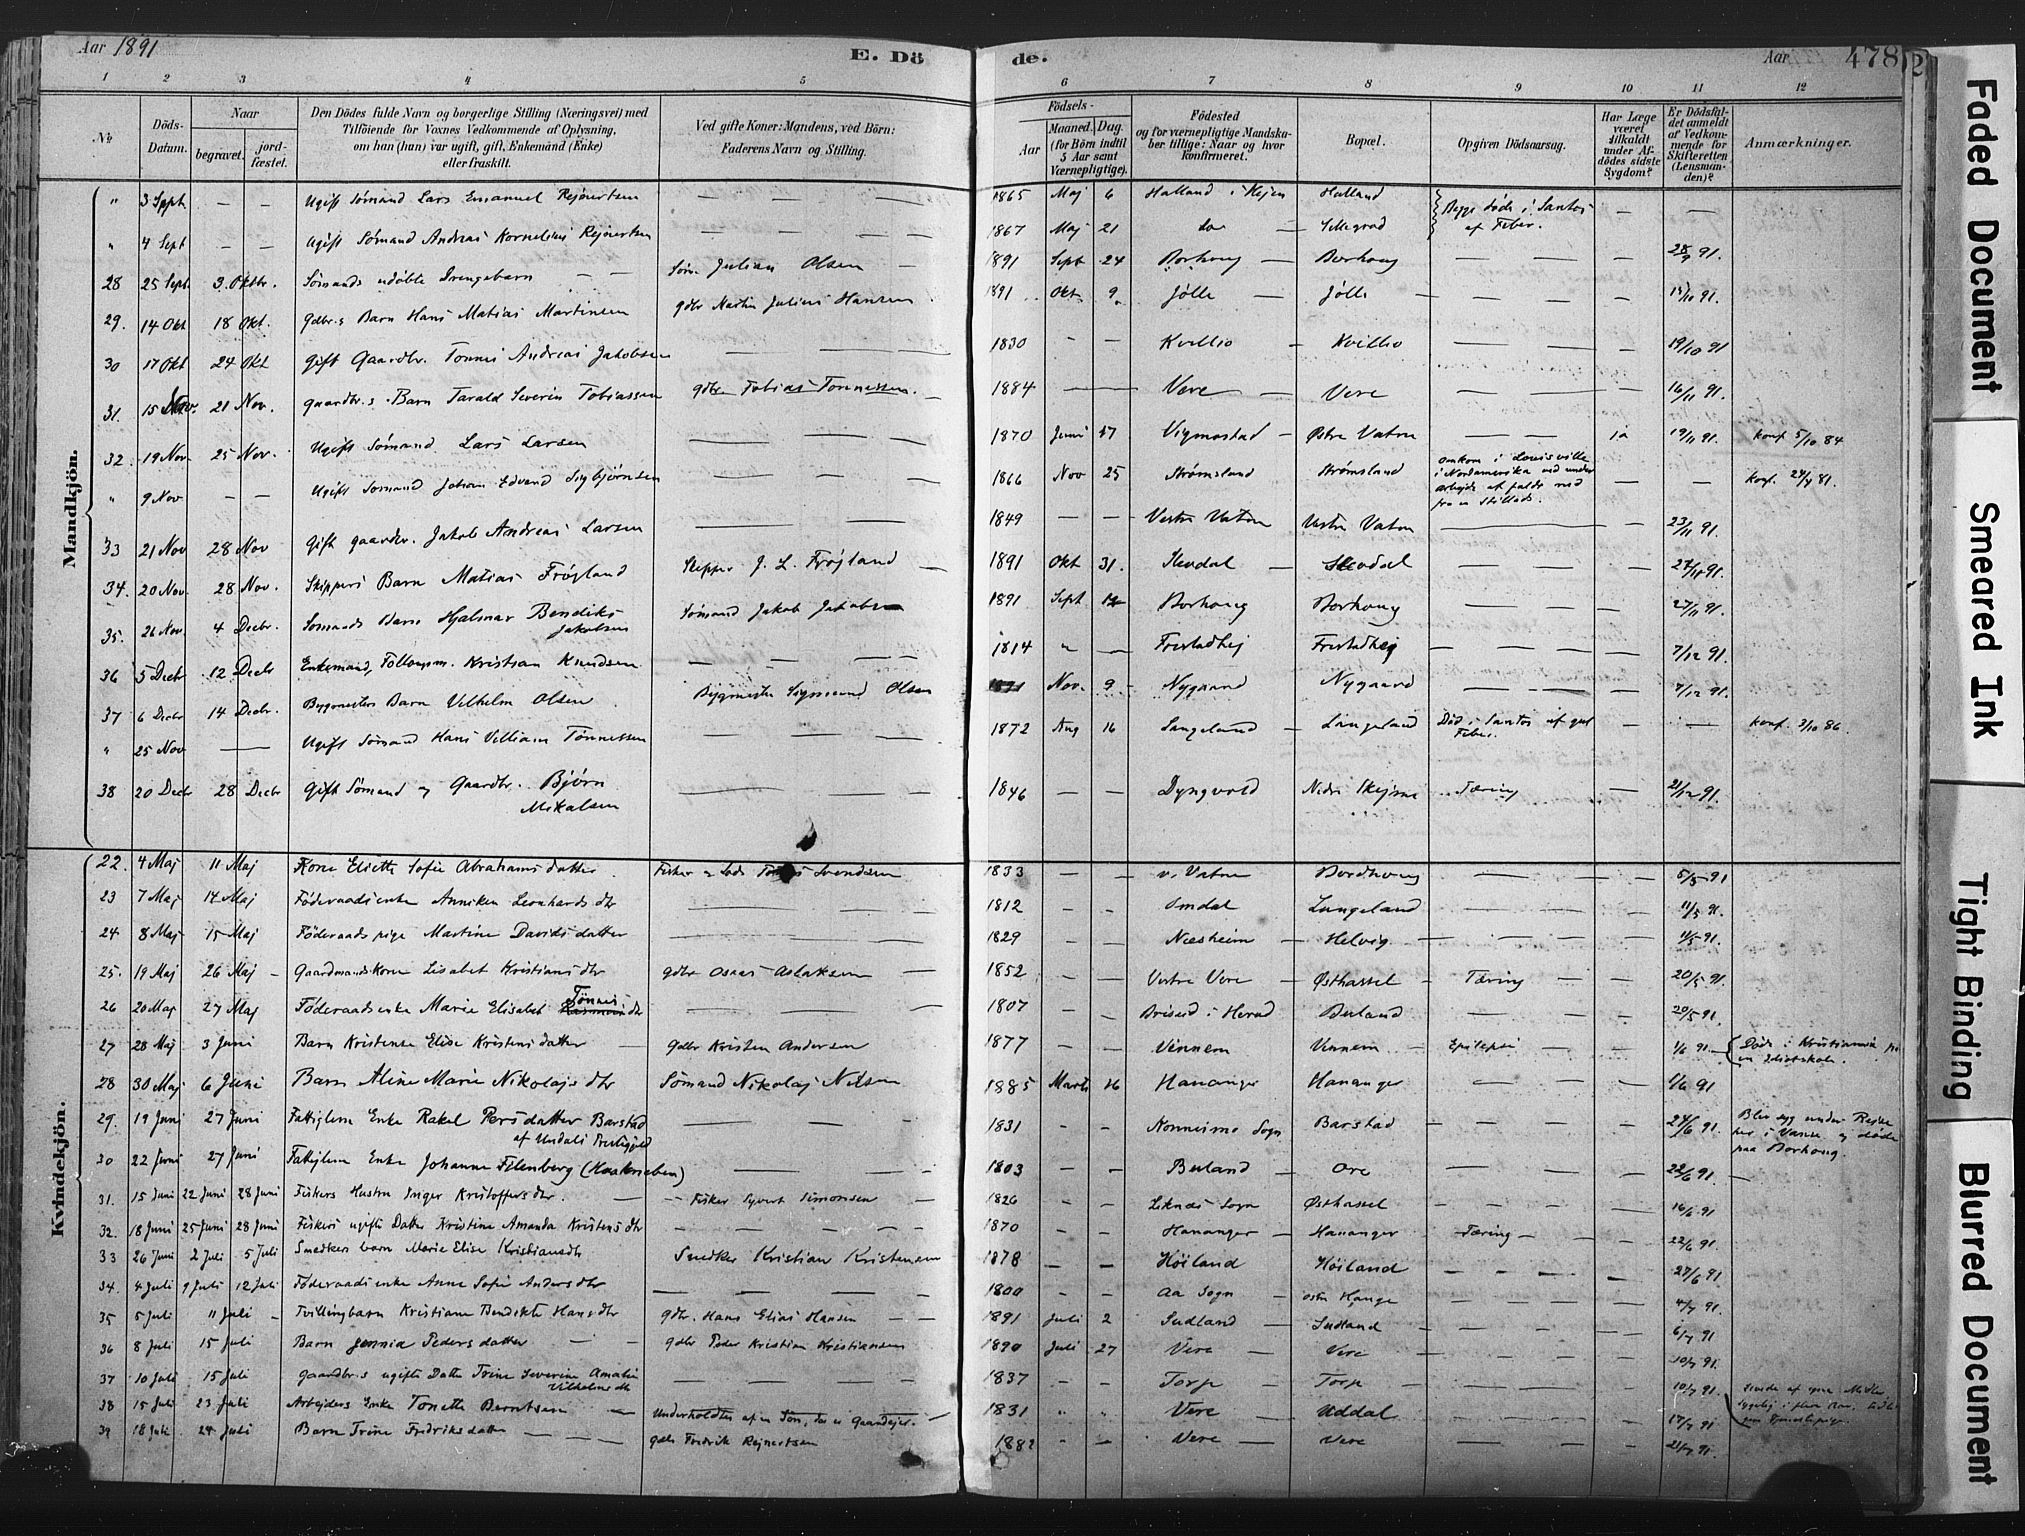 Aar 1891
E. Dö
de.
Aar
478
1 2 3 4 5 6 7 8 9 10 11 12
No.
Döds-Datum.
Naar
begravet.
jord-fæstet.
Den Dödes fulde Navn og borgerlige Stilling (Næringsvei) med
Tilföiende for Voxnes Vedkommende af Oplysning,
om han (hun) var ugift, gift, Enkemand (Enke)
eller fraskilt.
Ved gifte Koner: Mandens, ved Börn:
Faderens Navn og Stilling.
Födsels-
Aar
Maaned. Dag.
(for Börn indtil
5 Aar samt
Værnepligtige).
Födested
og for værnepligtige Mandska-
ber tillige: Naar og hvor
konfirmeret.
Bopæl.
Opgiven Dödsaarsag.
Har Læge
været
tilkaldt
under Af-
dödes sidste
Sygdom?
Er Dödsfal-
det anmeldt
af Vedkom-
mende for
Skifteretten
(Lensman-
den)?
Anmærkninger.
Mandkjön.
" 3 Sept. — — Ugift Sømand Lars Emanuel Rejnertsen — — 1865 Maj 6 Halland i Hejen Halland } Begge døde i Santos af Feber. — —
" 4 Sept — — Ugift Sømand Andreas Kornelius Rejnertsen — — 1867 Maj 21 do —
28 25 Sept. 3. Oktbr. Sømands udøbte Drengebarn — — Søm. Julian Olsen — 1891 Sept 24 Borhoug — Borhoug — — 28/9 91.
29. 14 Okt 18 Okt. Gdbr.s Barn Hans Matias Martinsen gdbr Martin Julius Hansen 1891 Okt. 9 Jølle — Jølle — — 15/10 91.
30 17 Okt 24 Okt Gift Gaardbr. Tønnes Andreas Jakobsen — — 1830 - - Kvillio — Kvillio — — 19/10 91
31. 15 Nov. 21 Nov. Gaardbr.s Barn Tarald Severin Tobiassen gdbr Tobias Tønnessen. 1884 — Vere — Vere — — 16/11 91.
32. 19 Nov. 25 Nov. Ugift Sømand Lars Larsen — — 1870 Juni 17 Vigmostad — Østre Vatne — — ja 19/11 91. konf. 5/10 84
" 9 Nov — — Ugift Sømand Johan Edvard Sigbjørnsen — — 1866 Nov 25 Strømsland Strømsland omkom i Louisville i Nordamerika ved under arbejde at falde ned fra et Stillads. — — konf.
33 21 Nov 28 Nov Gift gaardbr. Jakob Andreas Larsen — — 1849 — — Vestre Vatne Vestre Vatne — — 23/11 91.
34. 20 Nov 28 Nov. Skippers Barn Matias Frøjland Skipper J. L. Frøjland — 1891 Okt 31. — —
35. 26 Nov. 4 Decbr. Sømands Barn Hjalmar Bendiks Jakobsen Sømand Jakob Jakobsen 1891 Sept Borhoug Borhoug — — 27/11 91.
36 5 Decbr 12 Decbr Enkemand, Kristian Knudsen — — 1814 " — Frestadhej Frestadhej — — 7/12 91.
37 6 Decbr 14 Decbr. Bygmesters Barn Vilhelm Olsen Bygmester Sigmund Olsen Nov. 9 Nygaard Nygaard — — 7/12 91.
" 25 Nov — Ugift Sømand Hans Villiam Tønnessen — — 1872 Aug 16 Langeland — Langeland Død i Santos af gul Feber. — — konf. 3/10 86.
38 20 Decbr 28 Decbr Gift Sømand og Gaardbr. Bjørn Mikalsen — — 1846 — — Dyngvold Nedre Skejme Tæring — 21/12 91.
Kvindekjön.
22. 4 Maj 11 Maj Kone Eliette Sofie Abrahamsdatter Fisker Svendsen 1833 — v. Vatne Bordhoug — — 5/5 91
23 7 Maj 14 Maj Føderaadsenke Anniken Leonhardsdtr — — 1812 - - Omdal Langeland — — 11/5 91.
24 8 Maj 15 Maj Føderaadspige Martine Davidsdatter — — 1829 - - Næsheim — Helvig — — 11/5 91.
25. 19 Maj 26 Maj — Gaardmandskone Lisabet Kristiansdtr gdbr Osaas Aslaksen — 1852 - - Vestre Vere — Østhassel — Tæring — — 20/5 91.
26 20 Maj 27 Maj Føderaadsenke Marie Elisabet Tønnesdtr — — 1807 - - Briseid i Herad Buland — — 20/5 91.
27 28 Maj 3 Juni Barn Kristense Elise Kristensdatter — Gdbr Kristen Andersen 1877 - - Vennem — Vennem — Epilepsi — — 1/6 91 — Døde i Kristianssand paa en Idiotskole.
28 30 Maj 6 Juni Barn Aline Marie Nikolajsdtr Sømand Nikolaj Nilsen 1885 Marts 16 Hananger Hananger — — 1/6 91
29. 19 Juni 27 Juni Fattiglem Enke Rakel Persdatter Barstad — — 1831 - - Nonneimo Sogn Barstad — — 24/6 91. Blev syg under Rejse her i Vanse og døde paa Borhoug.
30 22 Juni 27 Juni Fattiglem Enke Johanne Filenberg — — 1803 - - Buland — Ore — — 22/6 91. —
31. 15 Juni 22 Juni 28 Juni Fiskers Hustru Inger Kristoffersdtr. — Fisker Syvert Simonsen — 1826 - - Liknæs Sogn Østhassel — — 16/6 91
32. 18 Juni 25 Juni 28 Juni Fiskers ugifte Datter Kristine Amanda Kristensdtr — — 1870 - - Hananger — Hananger — Tæring — — 22/6 91.
33 26 Juni 2 Juli 5 Juli Snedkers barn Marie Elise Kristiansdtr Snedker Kristian Kristensen 1878 — — Høiland Høiland — — 27/6 91
34. 4 Juli 9 Juli 12 Juli Føderaadsenke Anne Sofie Andersdtr — — 1800 - - Aa Sogn — østre Hauge — — 4/7 91.
35 5 Juli 11 Juli — Tvillingbarn Kristiane Bendikte Hansdtr gdbr. Hans Elias Hansen — — 1891 Juli 2 Sudland — Sudland — — 6/7 91
36 8 Juli 15 Juli Barn Jennia Pedersdatter — — gdbr Peder Kristian Kristiansen 1890 Juli 27 Vere — Vere — — 10/7 91.
37 10 Juli 15 Juli Gaardbr.s ugifte Datter Trine Severine Amalie Vilhelmsdtr — — 1837 — — Torp — Torp — — 10/7 91.
38 15 Juli 23 Juli Arbejders Enke Tonette Berntsen — Underholdtes af en Søn, der er Gaardejer. — 1831 " " Vere — Uddal — — 17/7 91
39 18 Juli 24 Juli Barn Trine Fredriksdatter — — gdbr Fredrik Rejnertsen 1882 - - Vere — Vere — — 21/7 91.
Faded Document
Smeared Ink
Tight Binding
Blurred Document